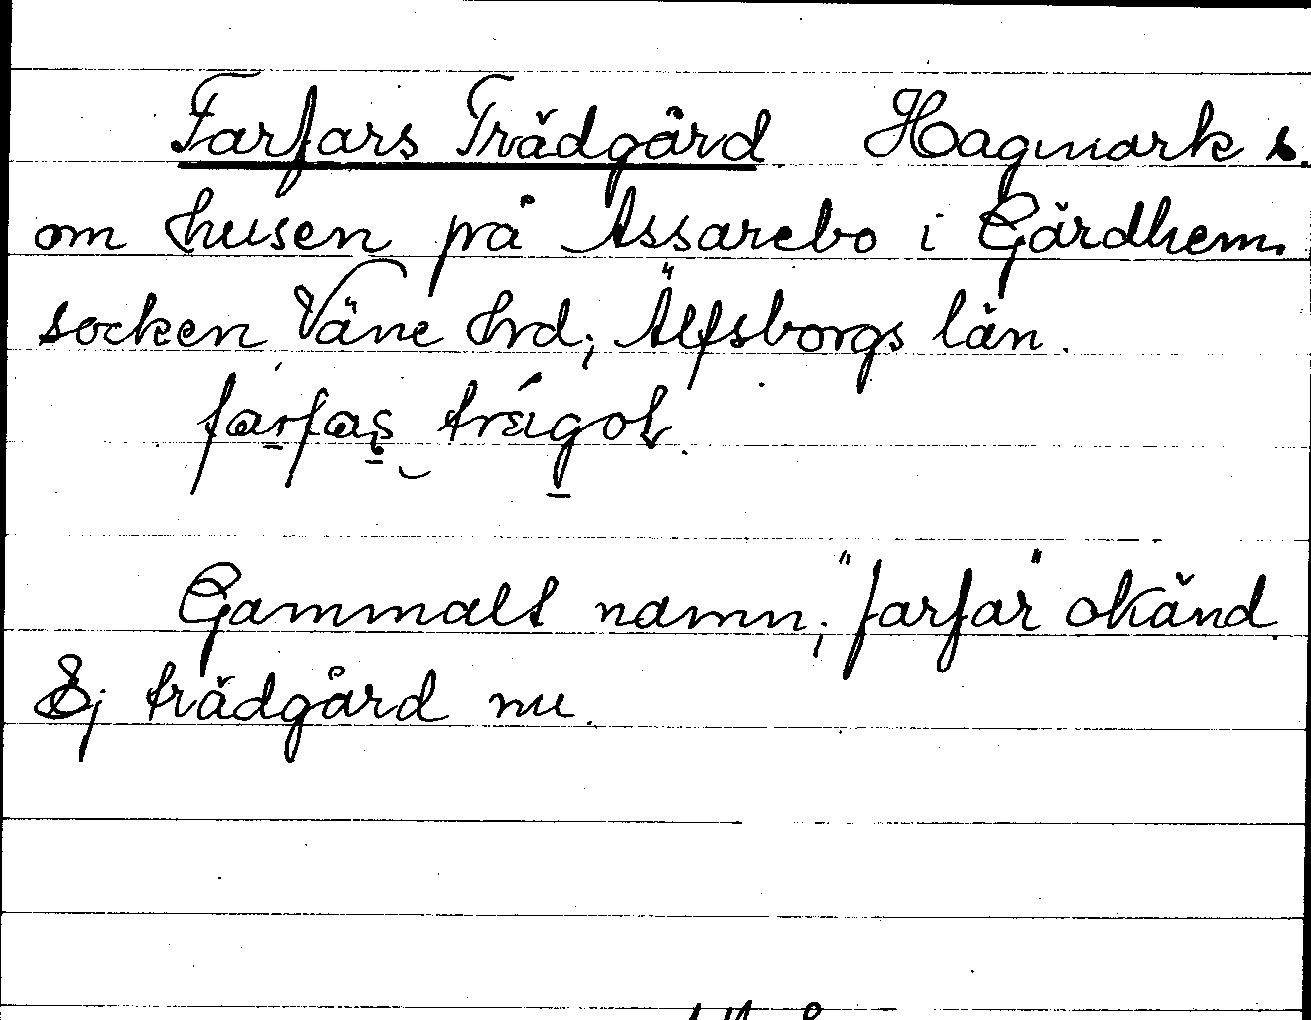 Farfars Trädgård. Hagmark s.
om husen på Assarebo i Gärdhem.
socken Väne hrd; Älfsborgs län.
farfas trägoḷ.
Gammalt namn; "farfar" okänd.
Ej trädgård nu.